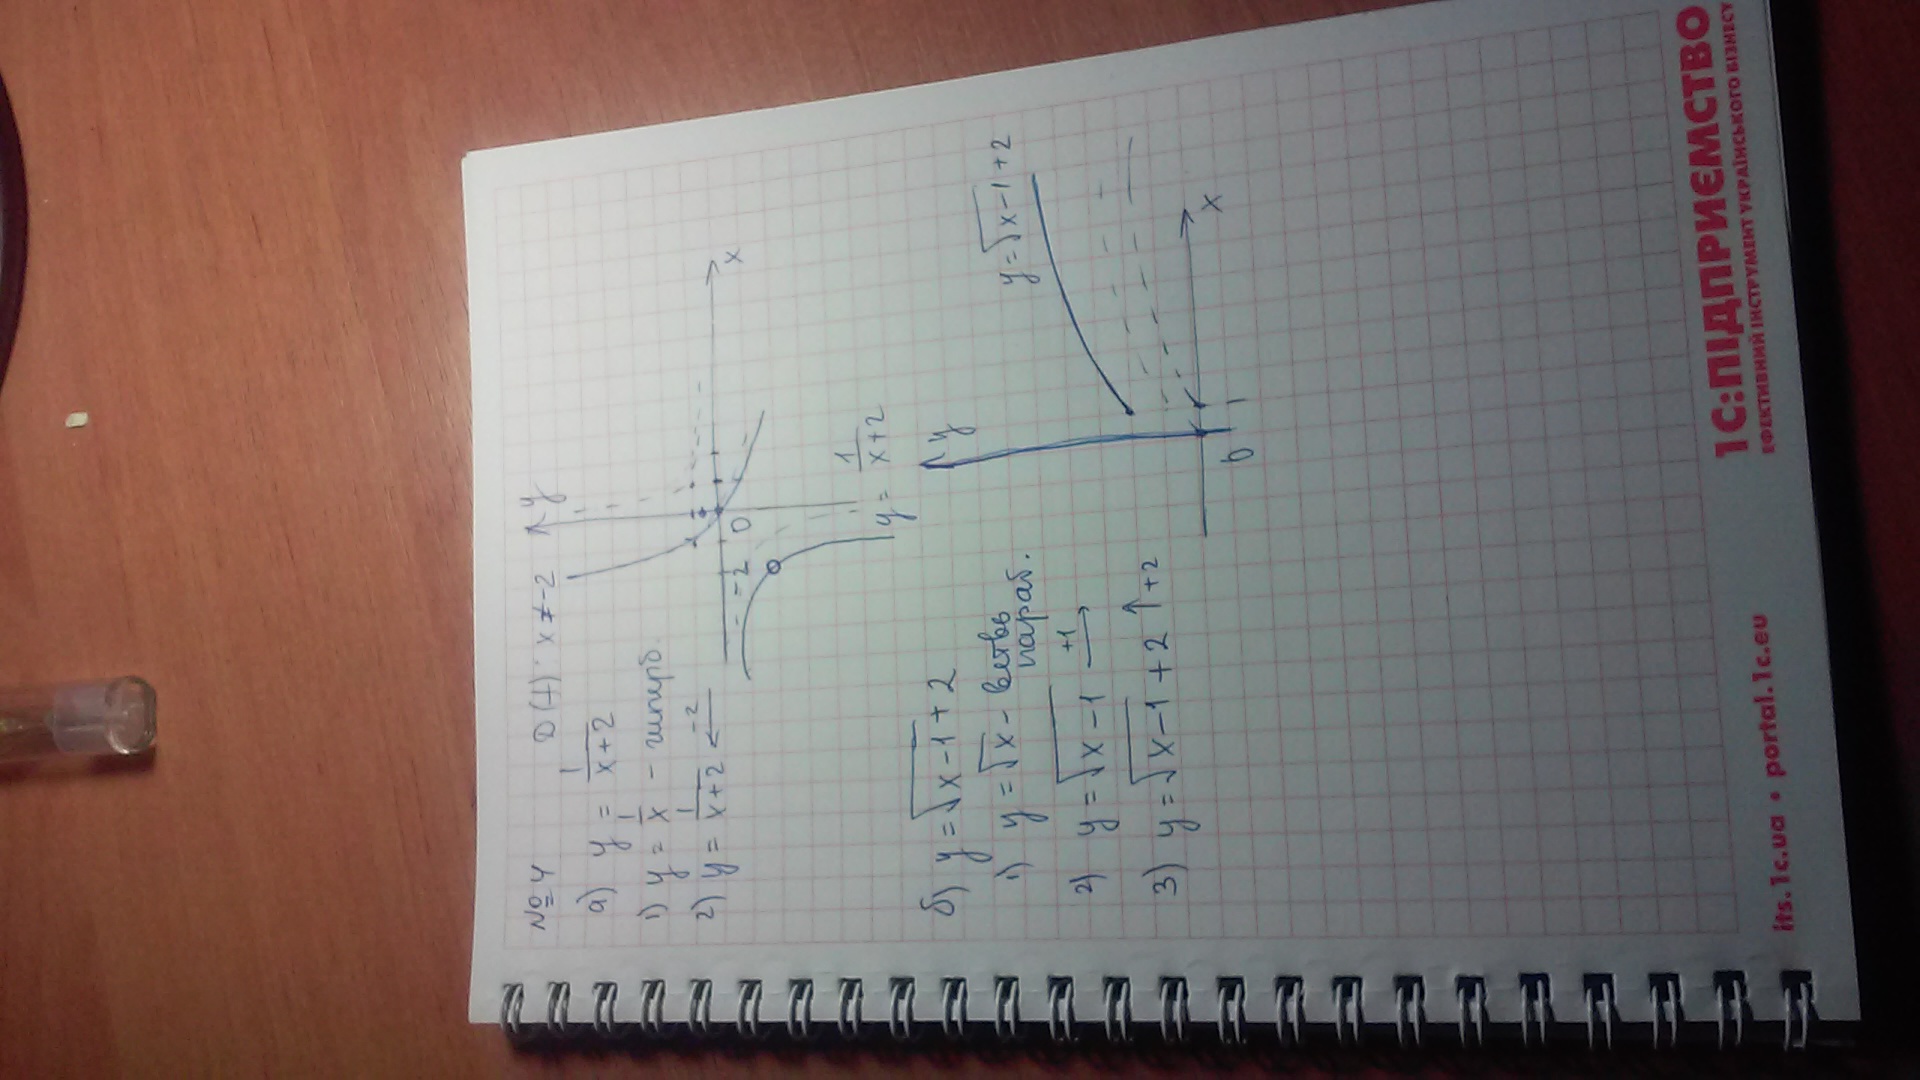 №4 D(f): x ≠ -2
а) y = 1/(x+2)
1) y = 1/x - гиперб.
2) y = 1/(x+2) ← -2
y
x
0
-2
y = 1/(x+2)
б) y = √(x-1) + 2
1) y = √x - ветвь параб.
2) y = √(x-1) +1 →
3) y = √(x-1) + 2 ↑ +2
y
x
0
1
y = √(x-1) + 2
1С:ПІДПРИЄМСТВО
ЕФЕКТИВНИЙ ІНСТРУМЕНТ УКРАЇНСЬКОГО БІЗНЕСУ
its.1c.ua • portal.1c.eu